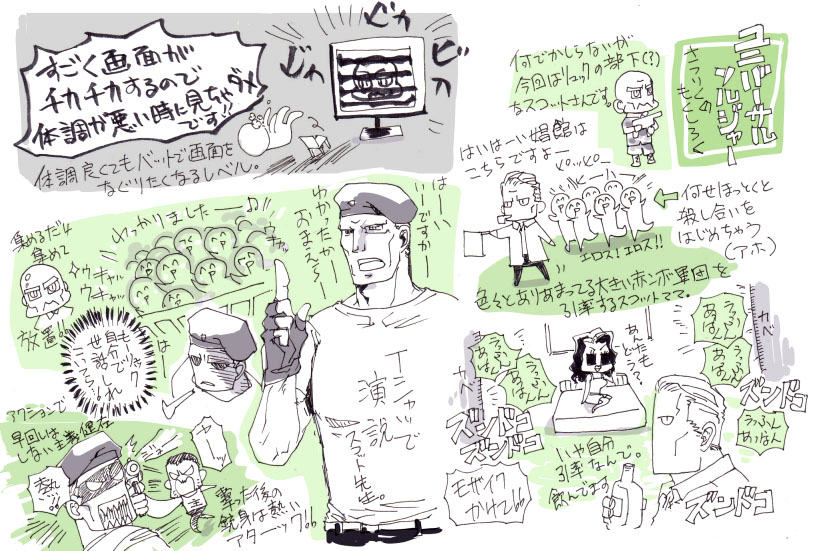 ユニバーサル
ソルジャー
さつりくの
もとしろく
何でかしらないが
今回はリュックの部下(?)
なスコットさんです。
すごく画面が
チカチカするので
体調が悪い時に見ちゃダメ
です!!
ピカ
ピカ
体調良くてもバットで画面を
なぐりたくなるレベル。
はいはーい娼館は
こちらですよー
ピーー
エロス!エロス!!
何せほっとくと
殺し合いを
はじめちゃう
(アホ)
色々とありあまってる大きい赤ンボ軍団を
引率するスコットママ。
はーい
いーですかー
わかったかー
おまえらー
わっかりましたーー♪
ウキャッ
ウキャッ
ウキャッ
集めるだけ
集めて
放置!!
はー
も自分でリュック
世話しろ
Tシャツで
演説
スコット先生。
アクションで
早回しは
しない主義健在
熱ッ!!
ジュー
撃った後の
銃身は熱い
アターック!!
カベ
カベ
うふん
あはん
うふん
あはん
うふん
あはん
うふん
あはん
うっふん
あっはん
あんたも
どう?
ズンドコ
ズンドコ
ズンドコ
ズンドコ
いや自分
引率なんで。
飲んでます
モザイク
かけて!!